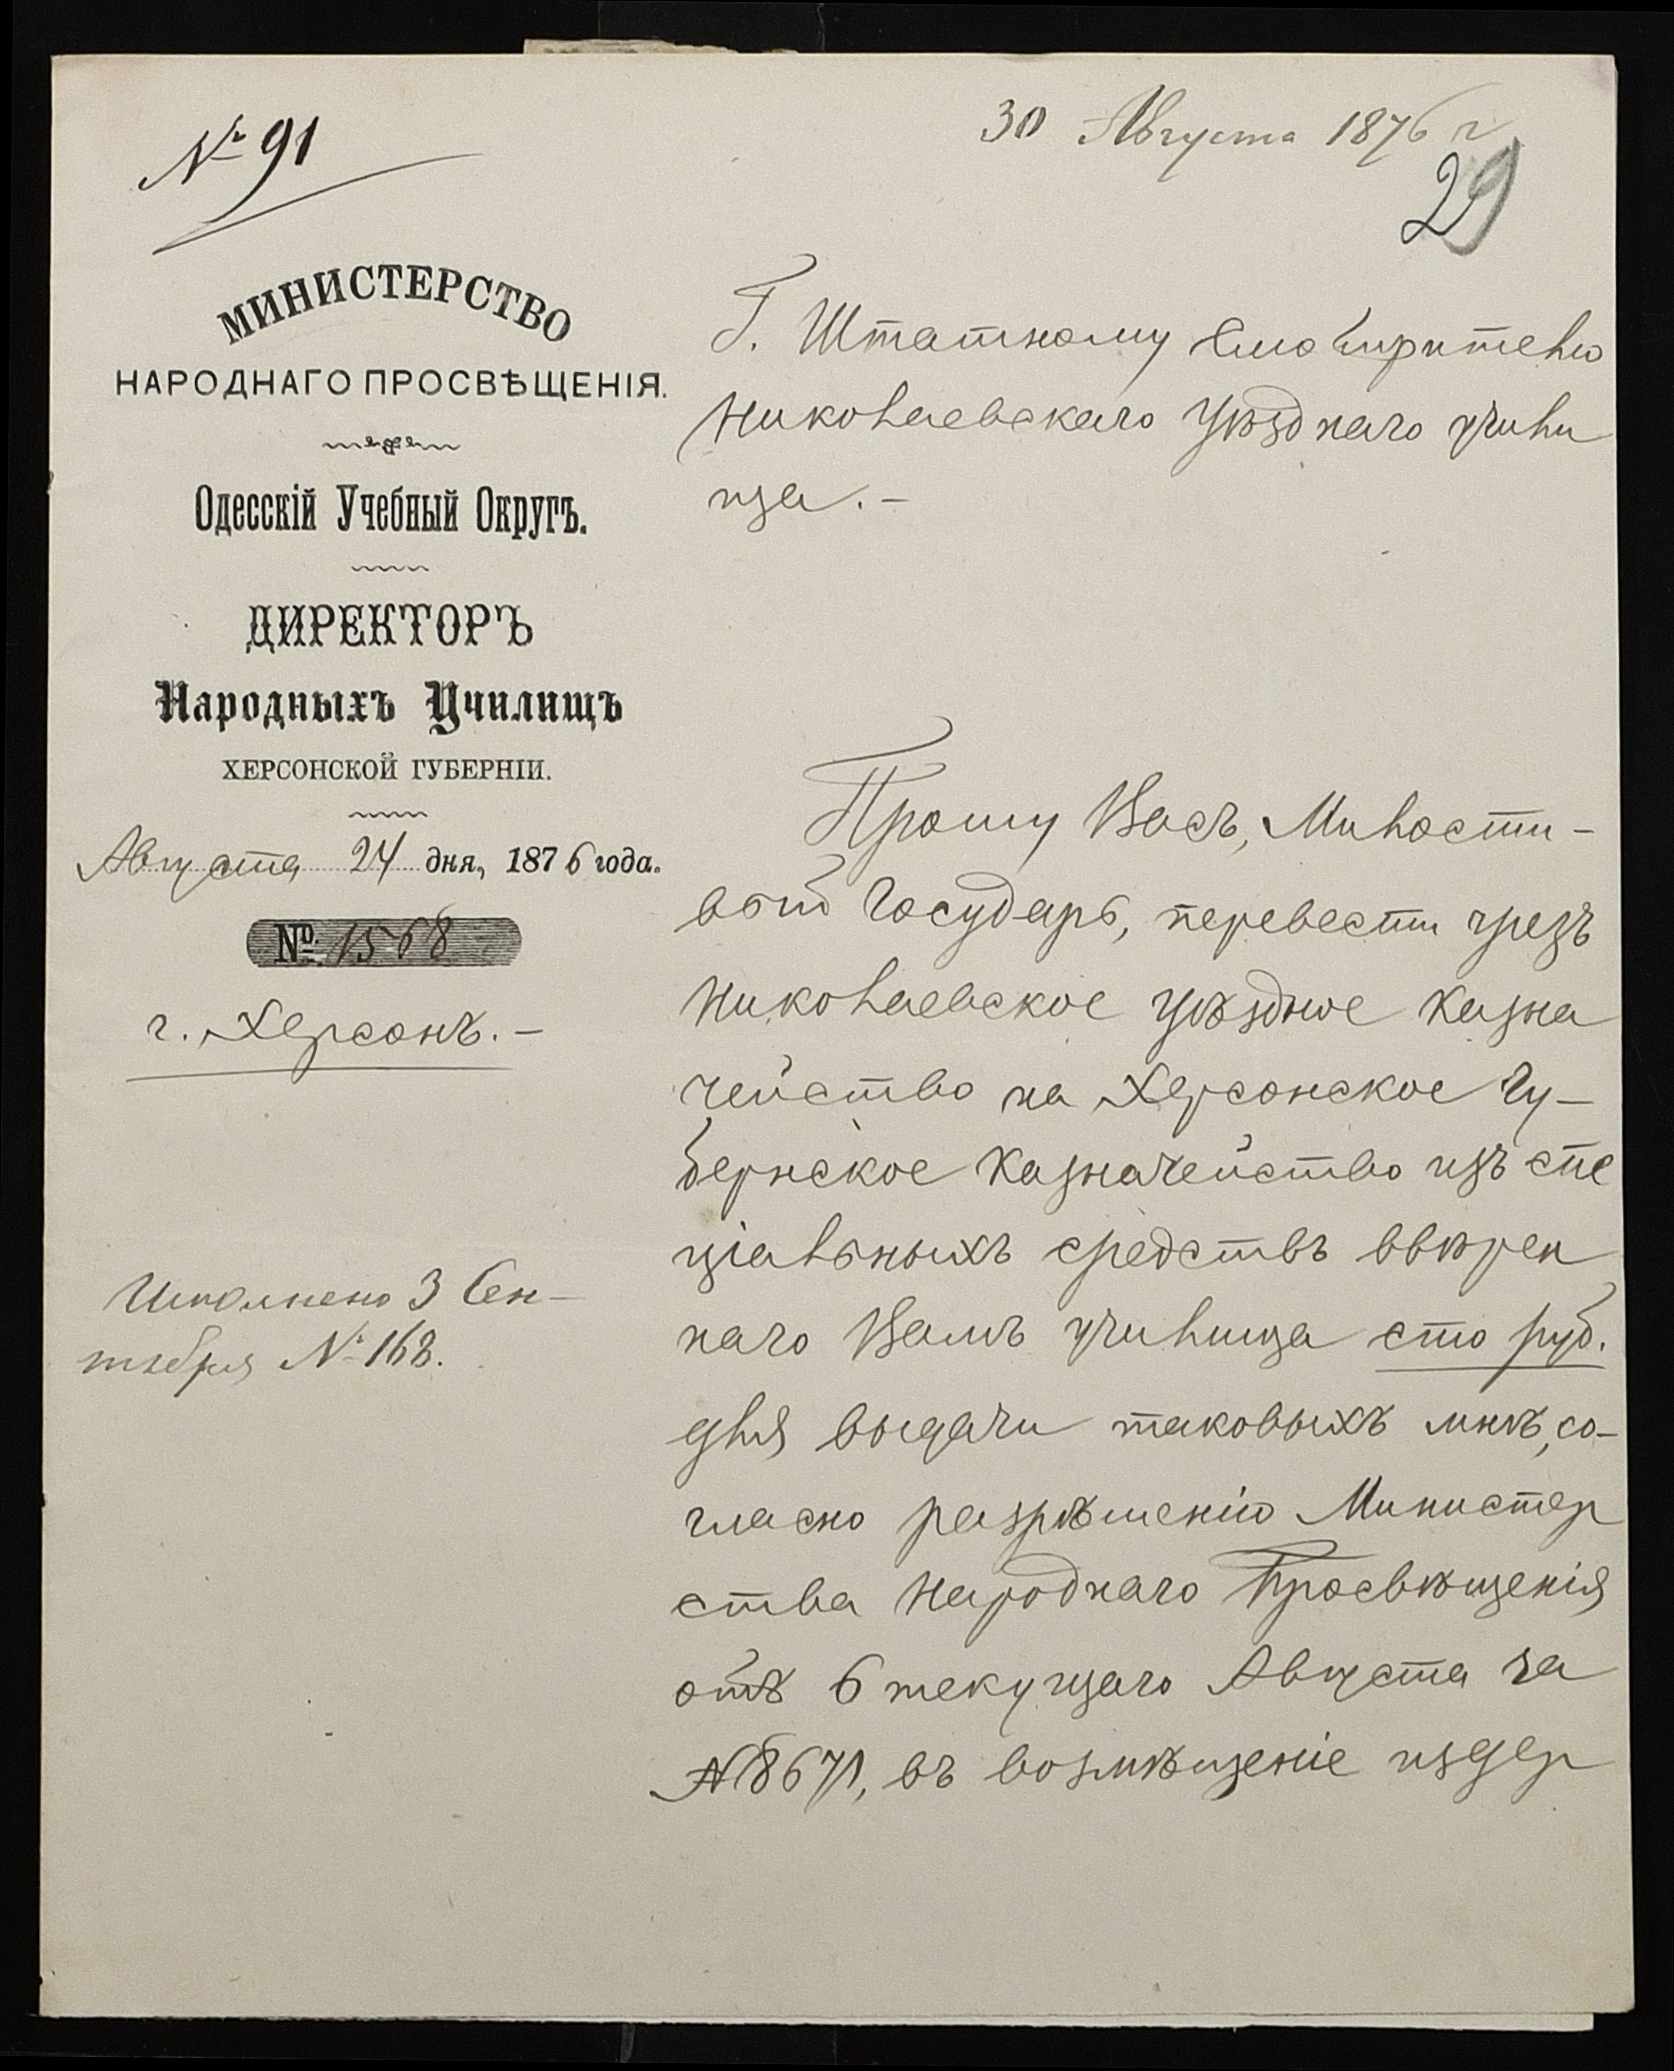 № 91
30 Августа 1876 г.
29
МИНИСТЕРСТВО
НАРОДНАГО ПРОСВѢЩЕНІЯ.
Одесскій Учебный Округъ.
ДИРЕКТОРЪ
Народныхъ Училищъ
ХЕРСОНСКОЙ ГУБЕРНІИ.
Августа 24 дня, 1876 года.
№ 1568
г. Херсонъ.-
Исполнено 3 Сен-
тября № 168.
Г. Штатному Смотрителю
Николаевскаго Уѣзднаго учили
ща.-
Прошу Васъ, Милости-
вый Государь, перевести чрезъ
Николаевское уѣздное Казна
чейство на Херсонское Гу-
бернское Казначейство изъ спе
ціальныхъ средствъ ввѣрен
наго Вамъ училища сто руб.
для выдачи таковыхъ мнѣ, со-
гласно разрѣшенію Министер
ства Народнаго Просвѣщенія
отъ 6 текущаго Августа за
№ 8671, въ возмѣщеніе издер